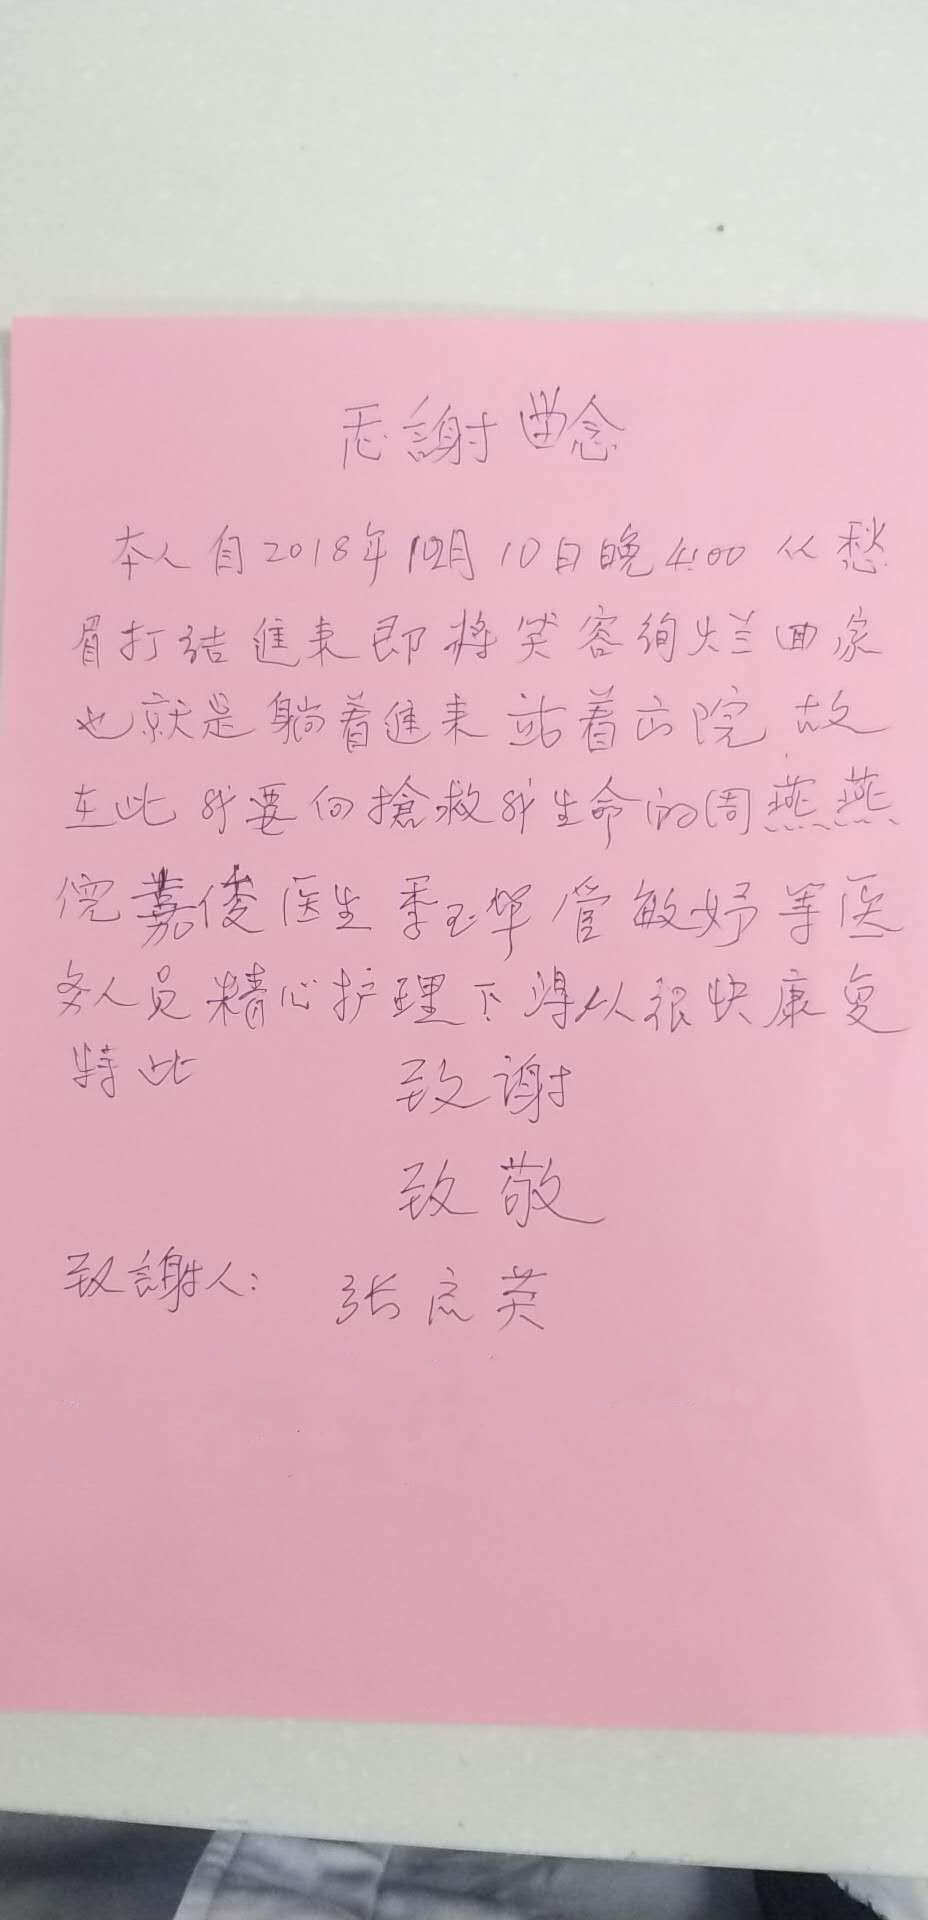 謝 念
本人自2018年12月10日晚4:00从愁
眉打结進来即将笑容绚烂回家
也就是躺着進来站着出院故
在此我要向搶救我生命的周燕燕
倪嘉倭医生季玉华管敏妤等医
务人员精心护理下得以很快康复
特此 致謝
致敬
致謝人: 张应英